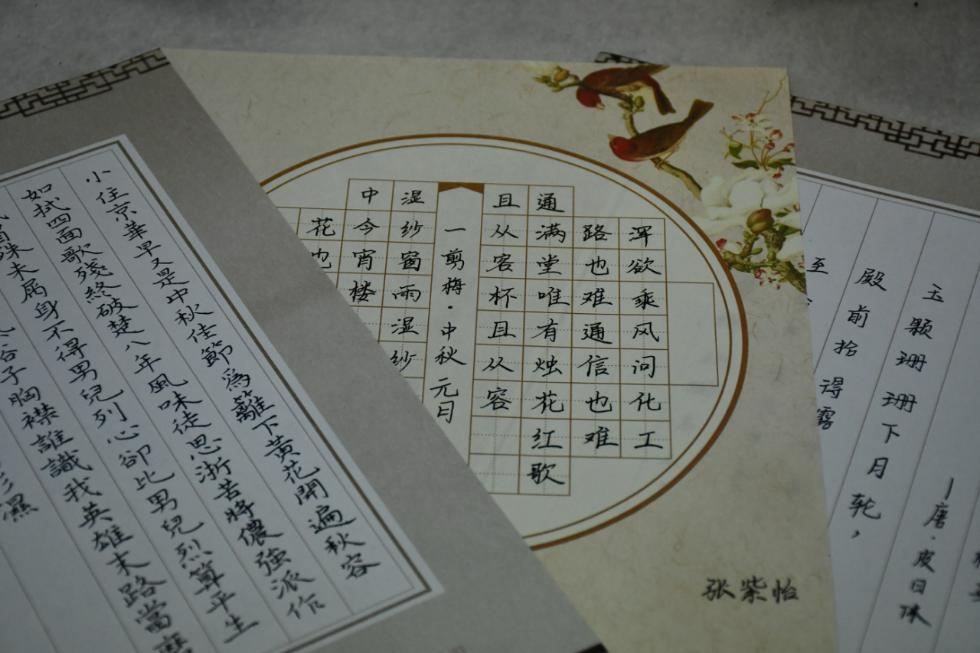 小住京華早又是中秋佳節為籬下黃花開遍秋容
如拭四面歌殘終破楚八年風味徒思浙苦將儂強派作
殊未屑身不得男兒列心卻比男兒烈算平生
俗子胸襟誰識我英雄末路當磨
濕
浑欲乘风问化工
路也难通信也难
通满堂唯有烛花红歌
且从容杯且从容
一剪梅·中秋元日
湿纱窗雨湿纱
中今宵楼
花也
张紫怡
唐·皮日休
玉颗珊珊下月轮，
殿前拾得露
至